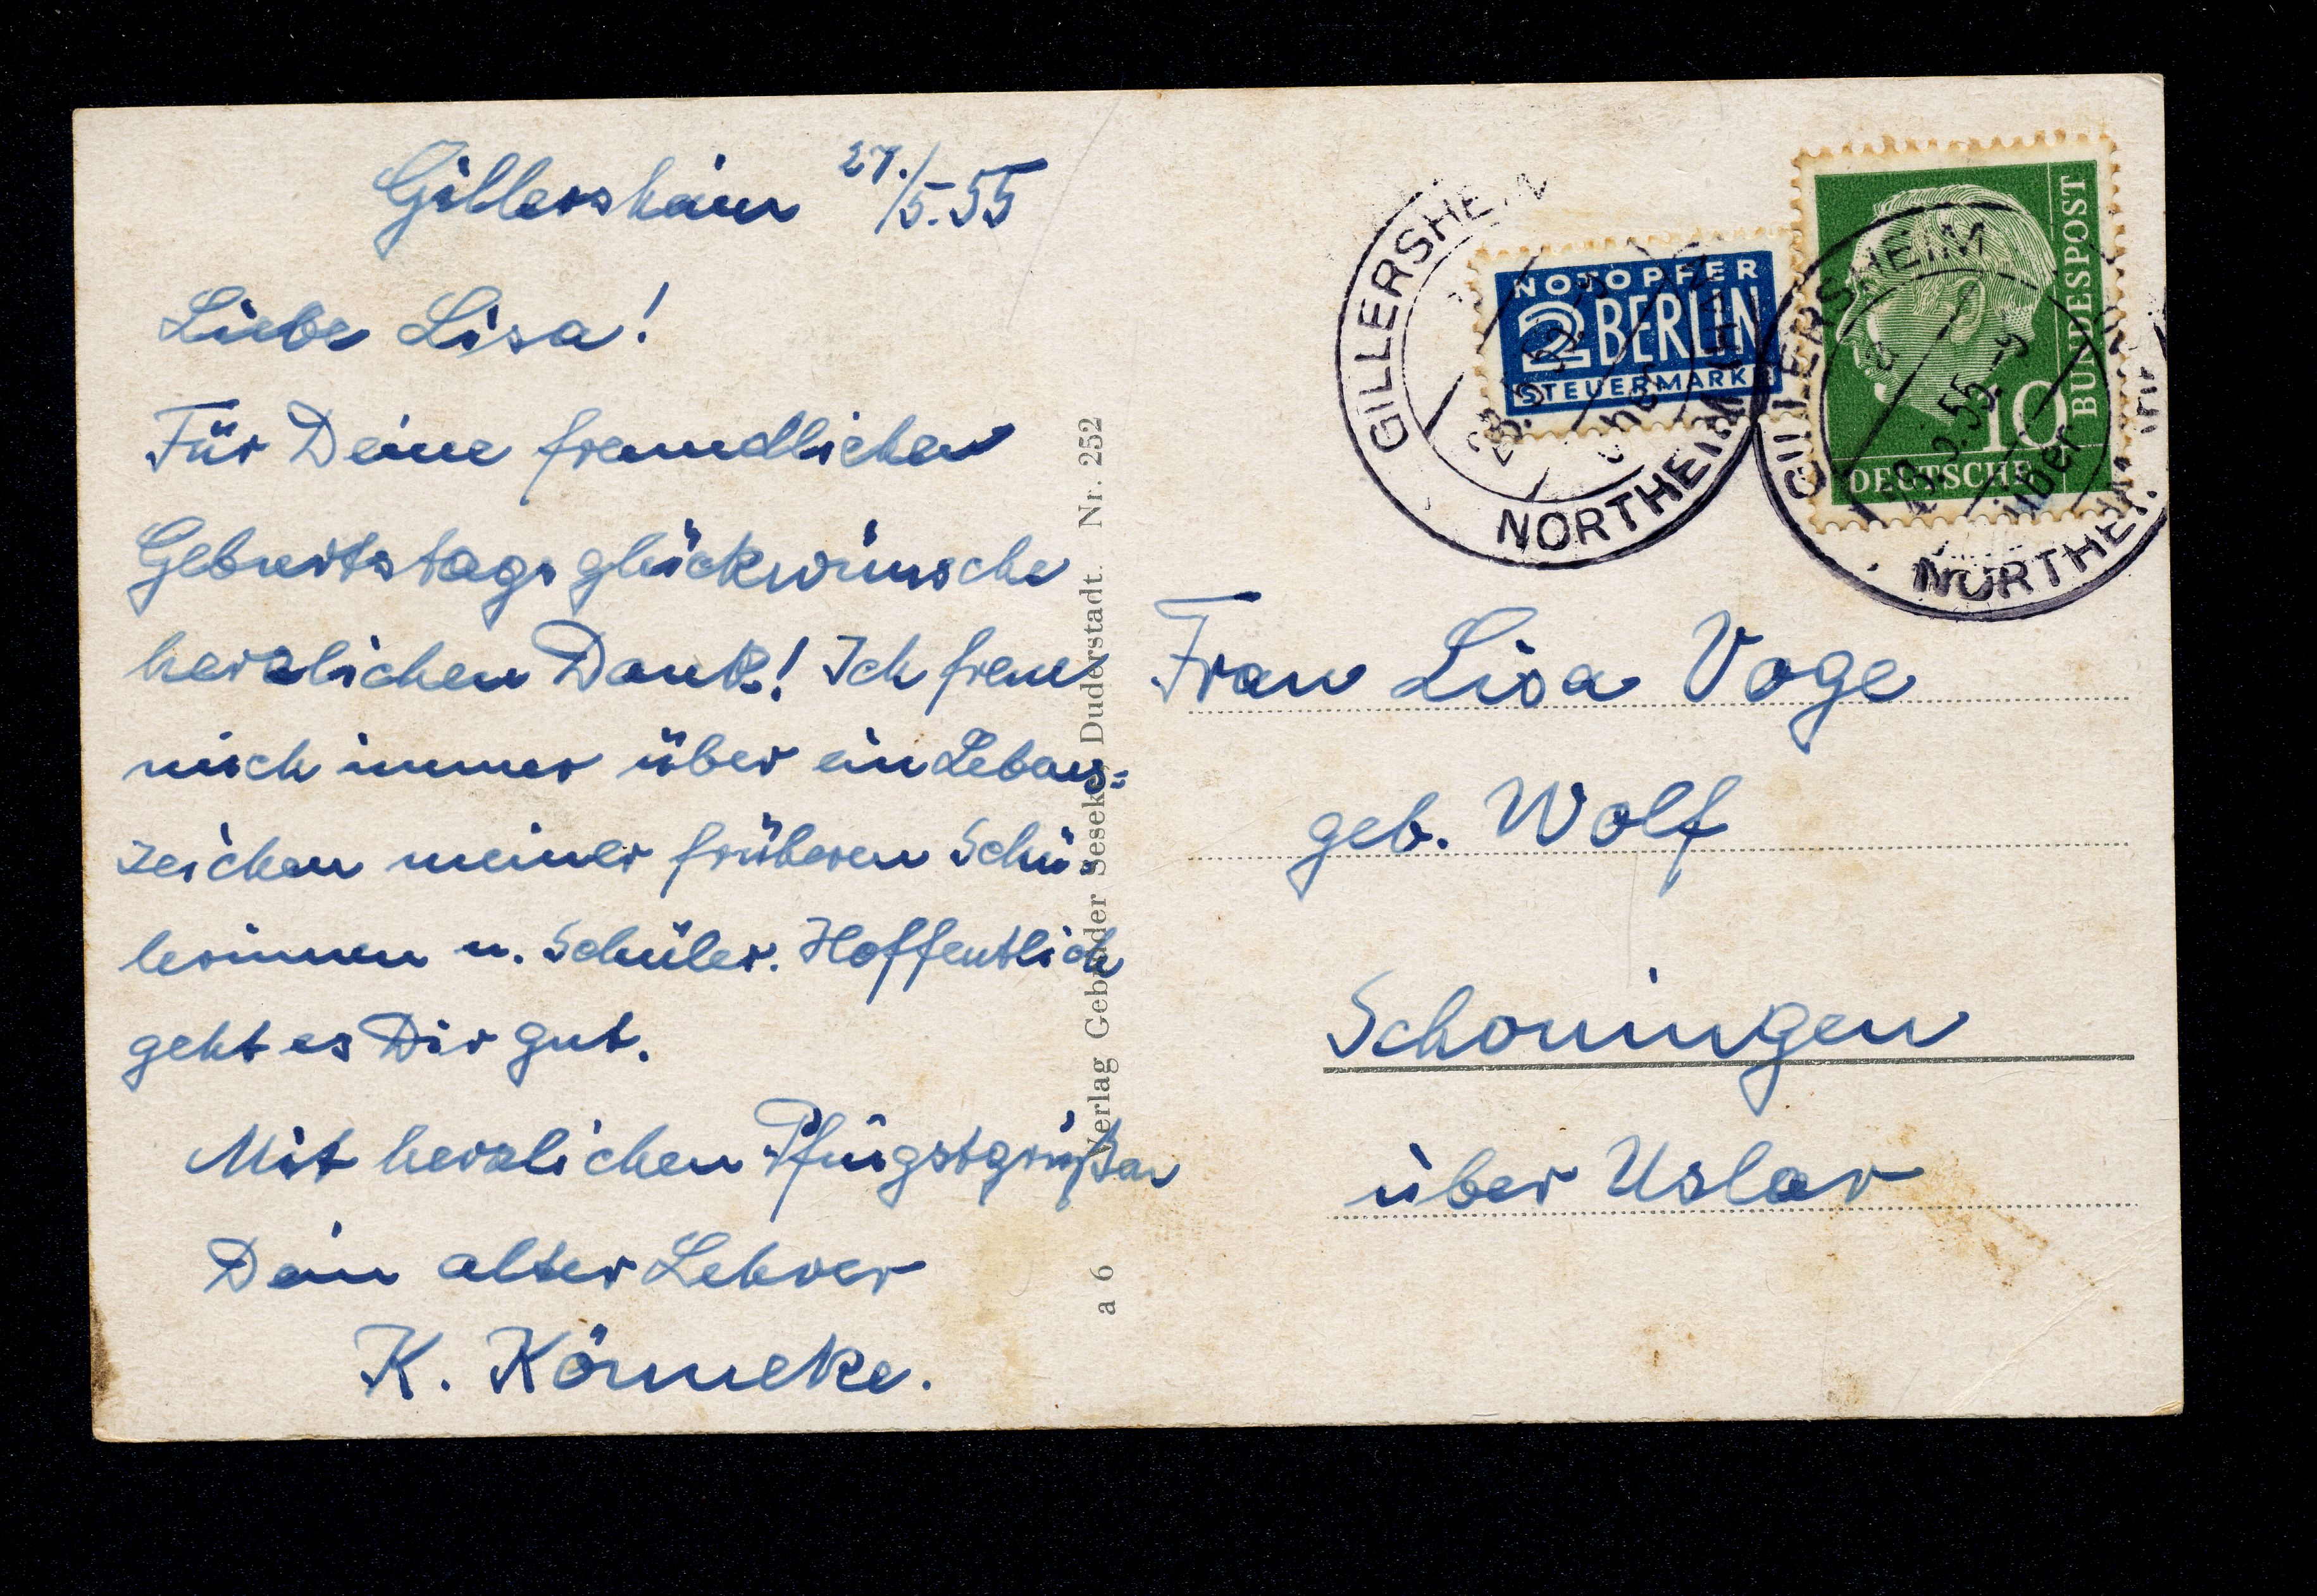 Gillersheim 27./5.55
Liebe Lisa!
Für Deine freundlichen
Geburtstagsglückwünsche
herzlichen Dank! Ich freue
mich immer über ein Lebens=
zeichen meiner früheren Schü-
lerinnen u. Schüler. Hoffentlich
geht es Dir gut.
Mit herzlichen Pfingstgrüßen
Dein alter Lehrer
K. Könneke.
a 6 Verlag Gebrüder Seseke, Duderstadt. Nr. 252
GILLERSHEIM
über
NORTHEIM
NOTOPFER
2 BERLIN
STEUERMARKE
GILLERSHEIM
a
28.5.55-9
über
NORTHEIM
10
DEUTSCHE
BUNDESPOST
Frau Lisa Voge
geb. Wolf
Schoningen
über Uslar